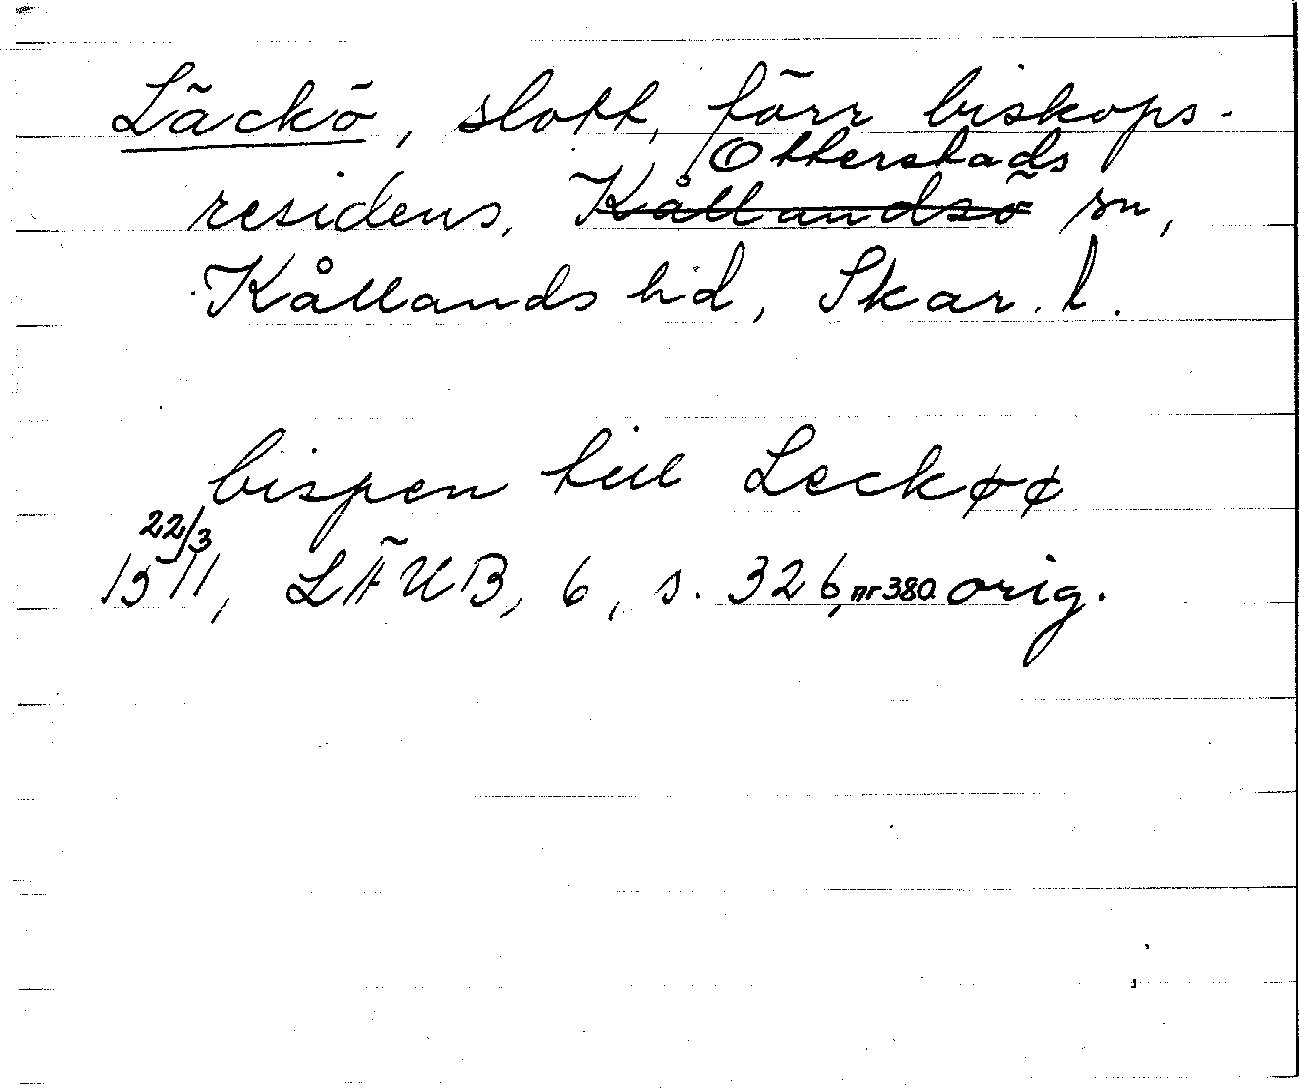 Läckö, slott, förr biskops-
Otterstads
residens, Kållandsö sn,
Kållands hd, Skar. l.
bispen till Leckøø
22/3
1511, LÄUB, 6, s. 326, nr 380. orig.